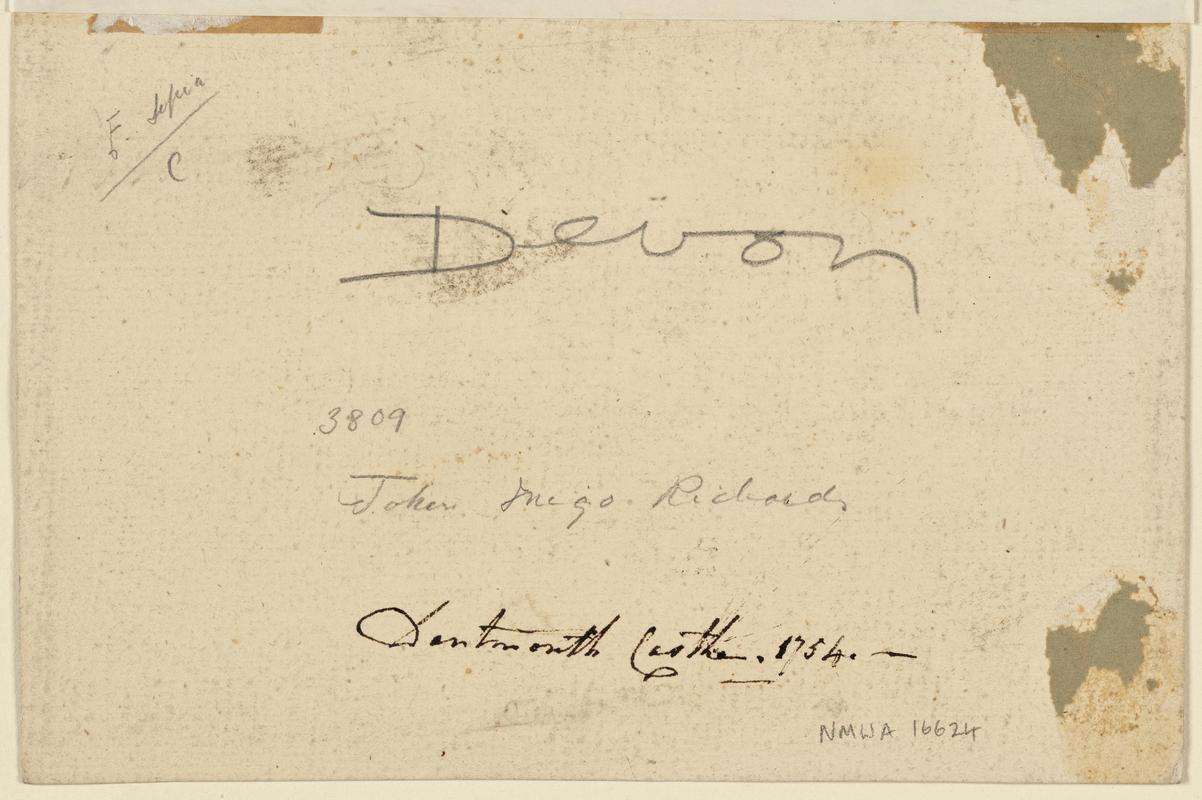 F. Sepia
C
Devon
3809
John Inigo Richards
Dartmouth Castle. 1754. —
NMWA 16624